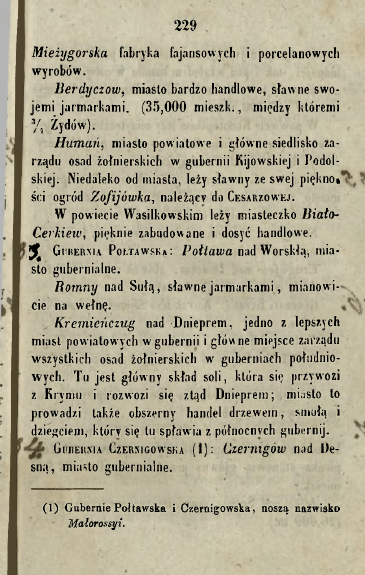 229
Mieżygorska fabryka fajansowych i porcelanowych
wyrobów.
Berdyczow, miasto bardzo handlowe, sławne swo-
jemi jarmarkami. (35,000 mieszk., między któremi
¾ Żydów).
Humań, miasto powiatowe i główne siedlisko za-
rządu osad żołnierskich w gubernii Kijowskiej i Podol-
skiej. Niedaleko od miasta, leży sławny ze swej piękno-
ści ogród Zofijówka, należący do Cesarzowej.
W powiecie Wasilkowskim leży miasteczko Biało-
Cerkiew, pięknie zabudowane i dosyć handlowe.
3. Gubernia Połtawska: Połtawa nad Worskłą, mia-
sto gubernialne.
Romny nad Sułą, sławne jarmarkami, mianowi-
cie na wełnę.
Kremieńczug nad Dnieprem, jedno z lepszych
miast powiatowych w gubernii i główne miejsce zarządu
wszystkich osad żołnierskich w guberniach południo-
wych. Tu jest główny skład soli, która się przywozi
z Krymu i rozwozi się ztąd Dnieprem; miasto to
prowadzi także obszerny handel drzewem, smołą i
dziegciem, który się tu spławia z północnych gubernij.
4. Gubernia Czernigowska (1): Czernigów nad De-
sną, miasto gubernialne.
(1) Gubernie Połtawska i Czernigowska, noszą nazwisko
Małorossyi.